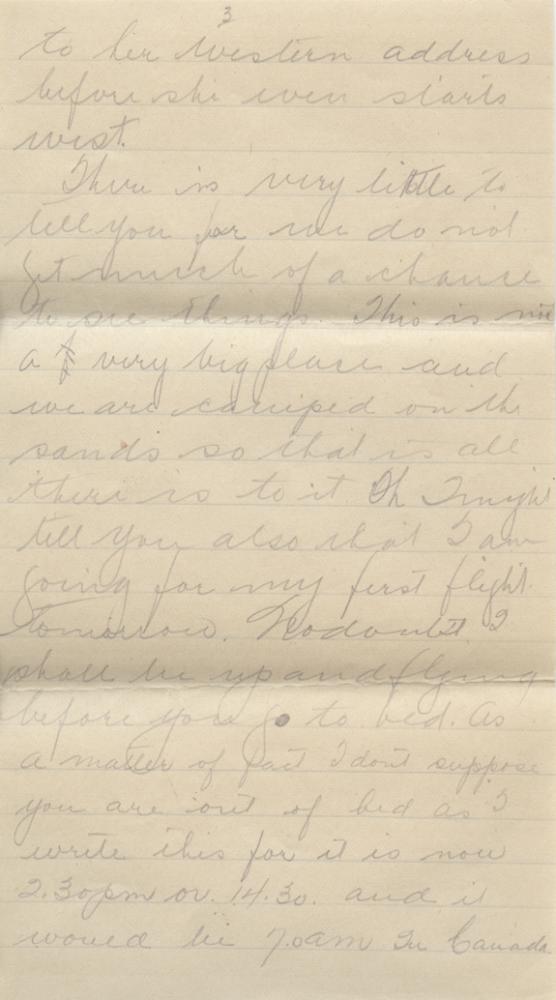 3
to her Western address
before she even starts
west.
There is very little to
tell you for we do not
get much of a chance
to see things. This is not
a very big place and
we are camped on the
sands so that is all
there is to it Oh I might
tell you also that I am
going for my first flight
tomorrow. Nodoubt I
shall be up and flying
before you go to bed. As
a matter of fact I dont suppose
you are out of bed as I
write this for it is now
2.30pm or. 14.30. and it
would be 7.0am In Canada